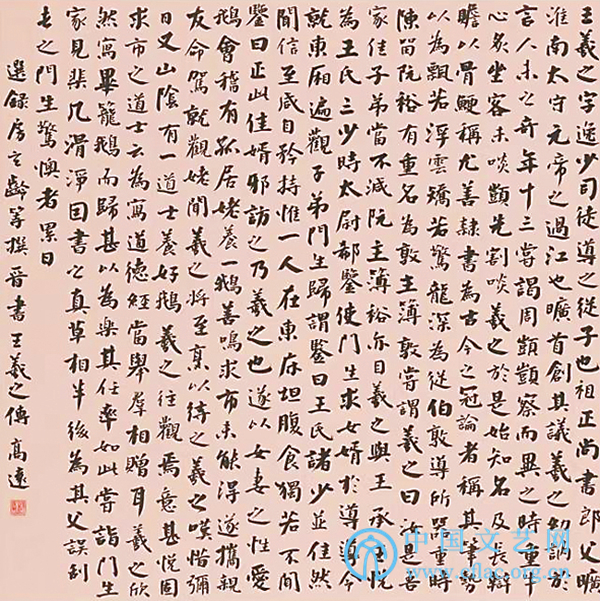 王羲之字逸少司徒導之從子也祖正尚書郎父曠
淮南太守元帝之過江也曠首創其議羲之幼訥於
言人未之奇年十三嘗謁周顗顗察而異之時重牛
心炙坐客未啖顗先割啖羲之於是始知名及長辯
贍以骨鯁稱尤善隸書為古今之冠論者稱其筆勢
以為飄若浮雲矯若驚龍深為從伯敦導所器重時
陳留阮裕有重名為敦主簿敦嘗謂羲之曰汝是吾
家佳子弟當不減阮主簿裕亦目羲之與王承王悅
為王氏三少時太尉郗鑒使門生求女婿於導導令
就東廂遍觀子弟門生歸謂鑒曰王氏諸少並佳然
聞信至咸自矜持惟一人在東床坦腹食獨若不聞
鑒曰正此佳婿邪訪之乃羲之也遂以女妻之性愛
鵝會稽有孤居姥養一鵝善鳴求市未能得遂攜親
友命駕就觀姥聞羲之將至烹以待之羲之嘆惜彌
日又山陰有一道士養好鵝羲之往觀焉意甚悅固
求市之道士云為寫道德經當舉群相贈耳羲之欣
然寫畢籠鵝而歸甚以為樂其任率如此嘗詣門生
家見棐几滑淨因書之真草相半後為其父誤刮
去之門生驚懊者累日
選錄房玄齡等撰晉書王羲之傳高遠
中国文艺网
www.cflac.org.cn